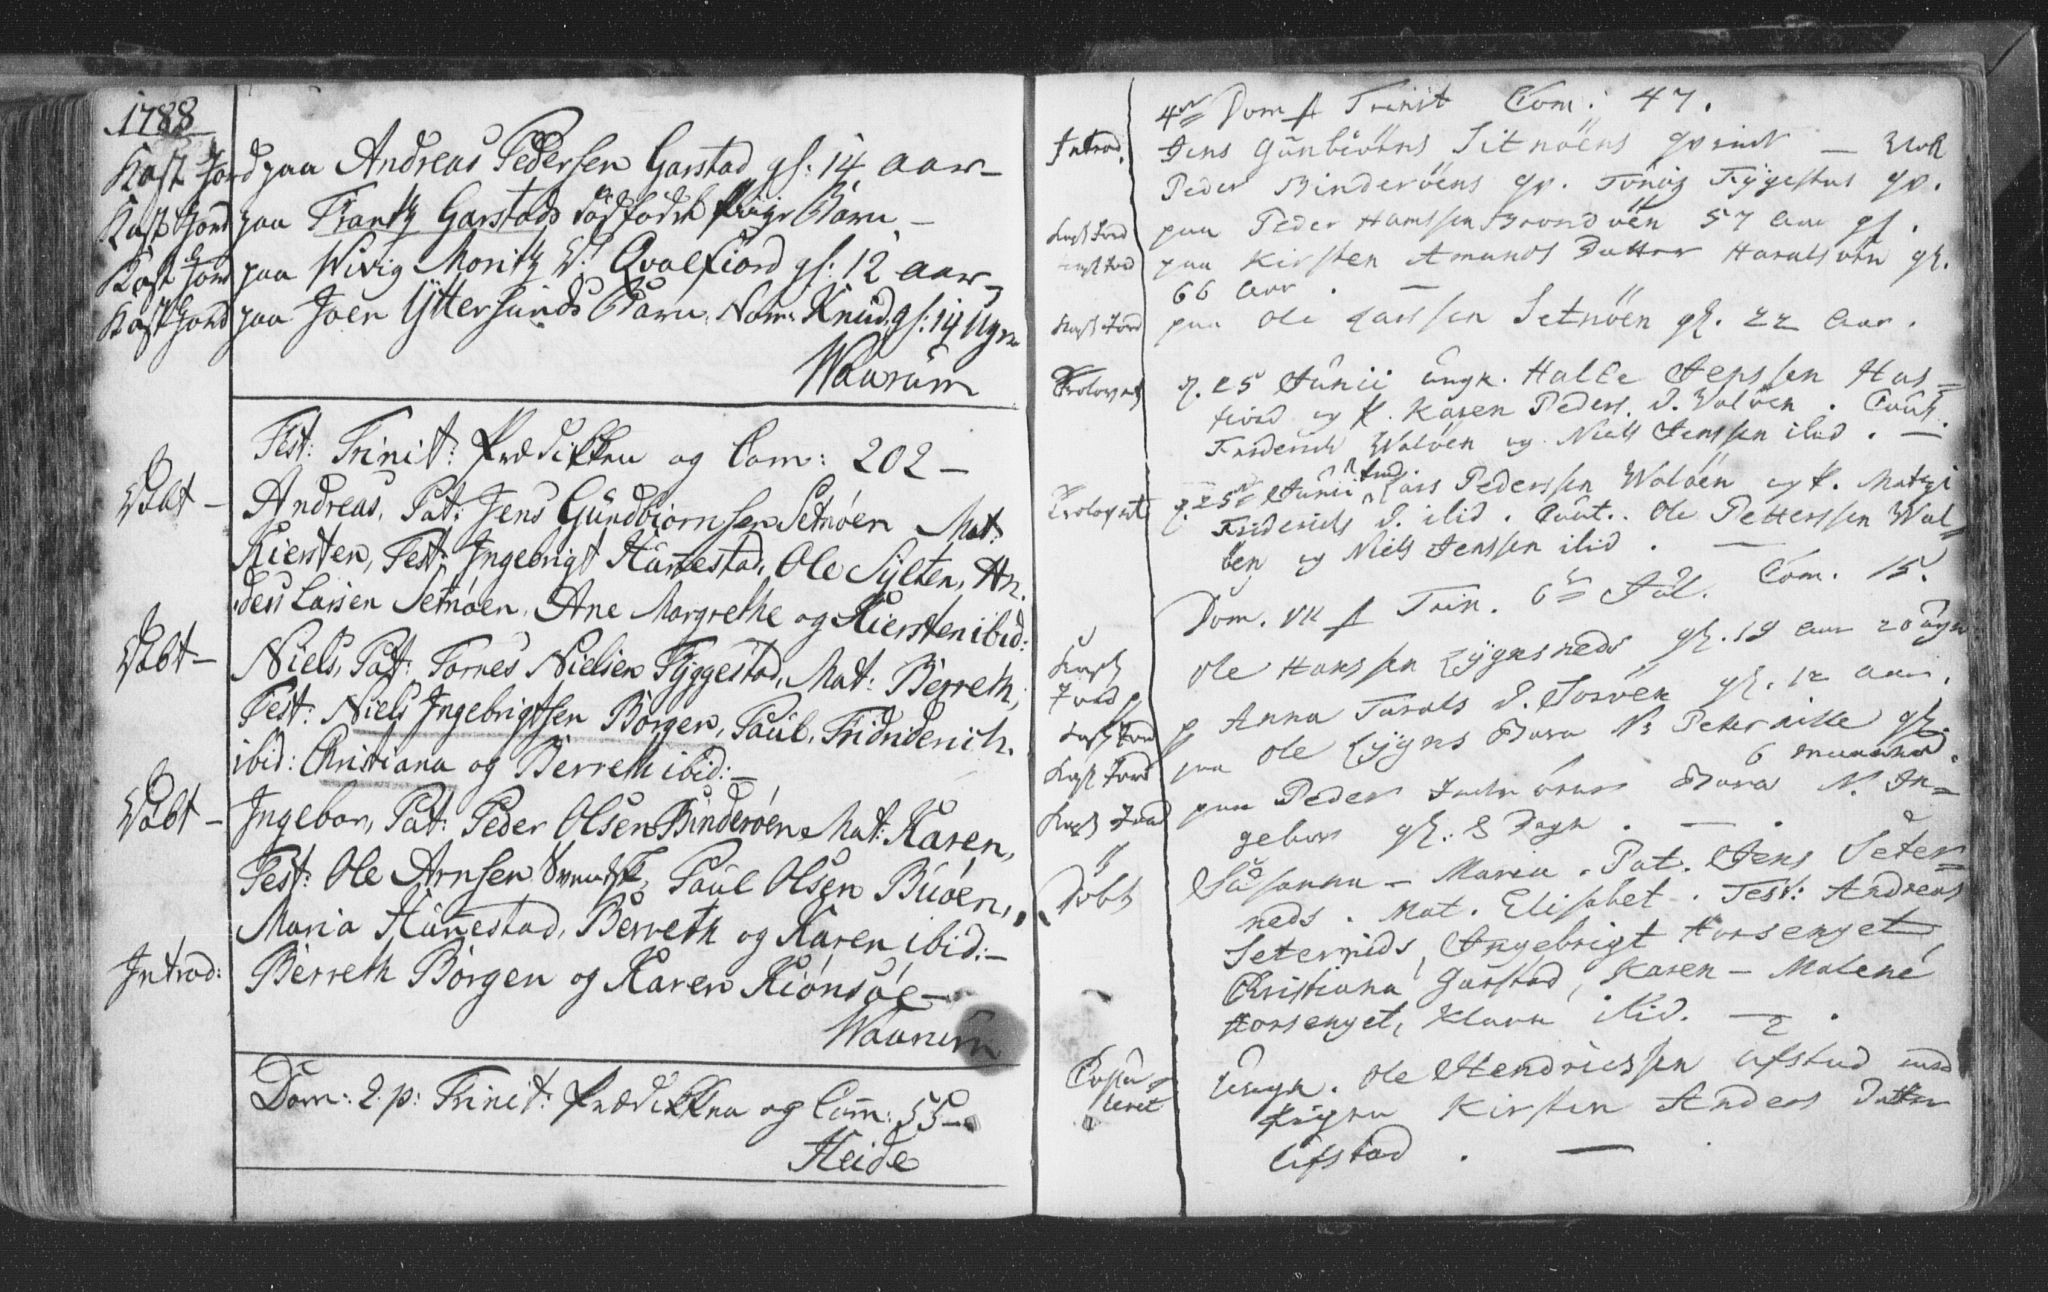 1788
Kast Jord paa Andreas Pedersen Garstad gl: 14 aar –
Kast Jord paa Frantz Garstads dødfødt Pige Barn –
Kast Jord paa Wivig Moritz D: Qvalfiord gl: 12 aar –
Kast Jord paa Joen Yttersunds Barn, Nom: Knud, gl: 14 Uger
Waurum
Fest: Trinit: Prædikken og Com: 202 –
Døbt – Andreas, Pat: Jens Gundbiørnsen Setnøen Mat:
Kiersten, Test: Ingebrigt Hunnestad, Ole Sylten, An-
ders Larsen Setnøen, Ane Margrethe og Kiersten ibid:
Døbt – Niels, Pat: Tornes Nielsen Fyggestad, Mat: Berreth,
Test: Niels Ingebrigtsen Børgen, Paul, Friderich
ibid: Christiana og Berreth ibid: –
Døbt – Ingebor, Pat: Peder Olsen Binderøen Mat: Karen,
Test: Ole Arnsen Paul Olsen Buøen,
Maria Hunnestad, Berreth og Karen ibid: –
Introd: Berreth Børgen og Karen Kiønsøe –
Waurum
Dom: 2. p: Trinit: Prædikken og Com: 55 –
Heide
4 Dom p Trinit Com: 47.
Introd. Jens Gunbiørns Sitnøens qvind –
Peder Binderøens qv. Tønes Fygestas qv.
Kast Jord paa Peder Hanssen Brondøen 57 Aar gl.
Kast Jord paa Kirsten Amunds Datter Haralsvin gl.
66 Aar. –
Kast Jord paa Ole Larssen Setnøen gl. 22 Aar.
Trolovet d. 25 Junii Ungk. Halle Jenssen Has-
tvad og P. Karen Peders. D. Waløen. Caut.
Friderich Waløen og Niels Jenssen ibid. –
Trolovet d. 25 Junii Lars Pederssen Waløen og P.
Friderichs D. ibid. Caut. Ole Petterssen Wal-
øen og Niels Jenssen ibid. –
Dom. VII p Trin. 6 Jul. Com. 15.
Kast
Jord Ole Hanssen gl. 19 Aar 20 Uger
Kast Jord p Anna Tarals D. gl. 12 Aar.
Kast Jord paa Ole Barn N. Peternille gl.
6 maaned.
Kast Jord paa Peder Barn N. In-
gebor gl. 8 Dage. –
Døbt Susanna – Maria. Pat. Jens Seter-
neds. Mat. Elisabet. Test: Andreas
Seterneds, Ingebrigt Horsenget
Christiana Garstad, Karen – Malene
Horsenget, Klara ibid. –
Copu-
leret Ungk. Ole Hendricssen Ufstad med
Pigen Kirsten Anders Datter
Ufstad. –